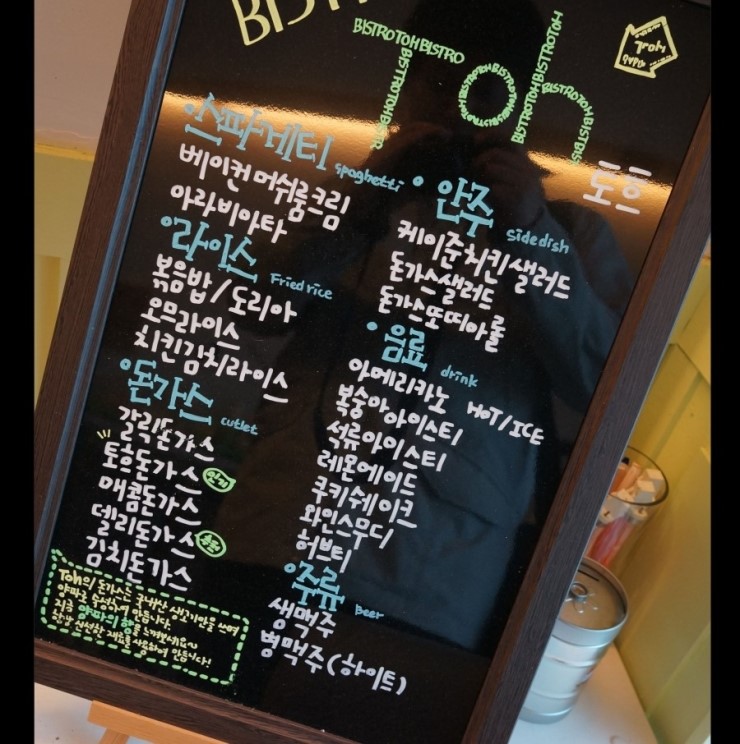 BIST
BISTROTOHBISTRO
BISTROTOHBISTR
Toh
도흐
스파게티 spaghetti
베이컨머쉬룸크림
아라비아타
라이스 Fried rice
볶음밥/도리아
오므라이스
치킨김치라이스
돈가스 cutlet
갈릭돈가스
토흐돈가스 인기
매콤돈가스
델리돈가스 추천
김치돈가스
Toh의 돈가스는 국내산 생고기만을 쓰며
양파로 숙성하여 만듭니다
양파의 힘을 느껴보세요
신선한 재료를 사용하여 만듭니다!
안주 Side dish
케이준치킨샐러드
돈가스샐러드
돈가스또띠아롤
음료 drink
아메리카노 HOT/ICE
복숭아아이스티
석류아이스티
레몬에이드
쿠키쉐이크
와인스무디
허브티
주류 Beer
생맥주
병맥주(하이트)